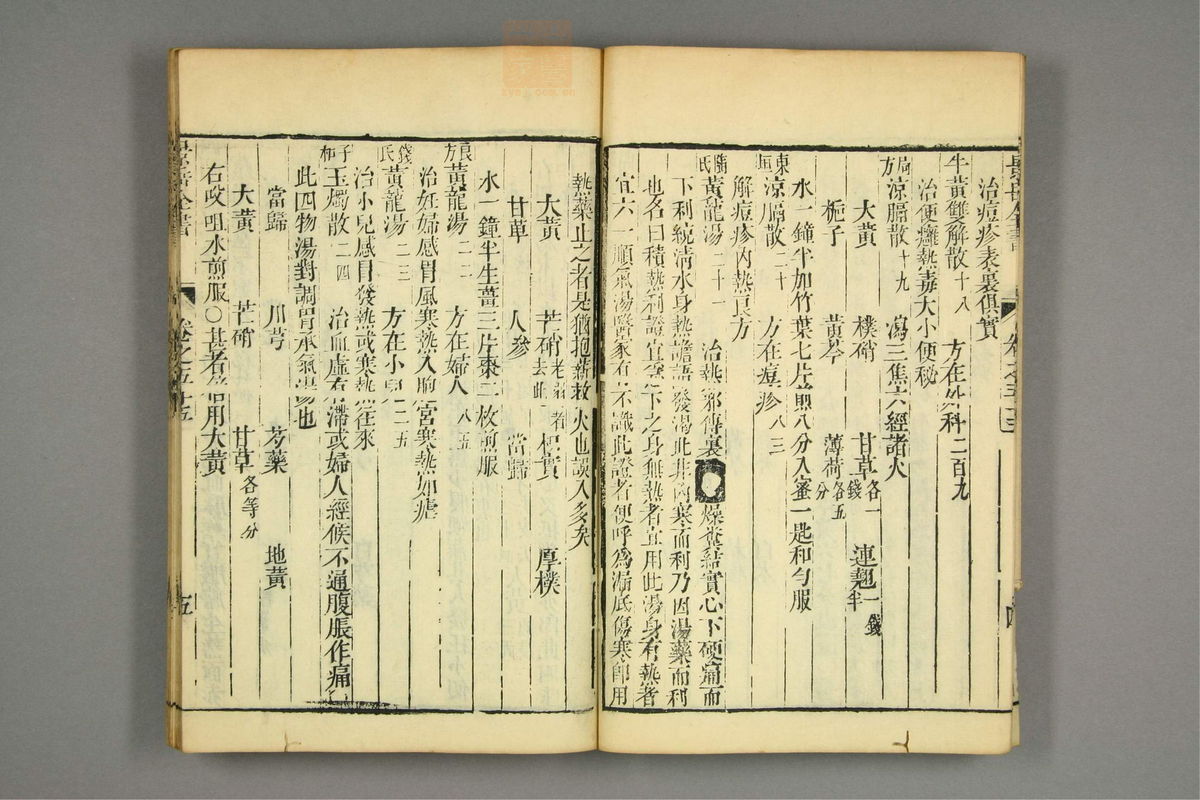 治痘疹表裏俱實
牛黃雙解散十八　方在外科二百九
治便癰熱毒大小便秘
局方涼膈散十九　瀉三焦六經諸火
大黃　樸硝　甘草各一錢　連翹一錢半
梔子　黃芩　薄荷各五分
水一鐘半加竹葉七片煎八分入蜜一匙和勻服
東垣涼膈散二十　方在痘疹八三
解痘疹內熱良方
陶氏黃龍湯二十一　治熱邪傳裏 燥糞結實心下硬痛而
下利純清水身熱譫語發渴此非內寒而利乃因湯藥而利
也名曰積熱利證宜急下之身無熱者宜用此湯身有熱者
宜六一順氣湯醫家有不識此證者便呼為漏底傷寒即用
熱藥止之者是猶抱薪救火也誤人多矣
大黃　芒硝老弱者去此　枳實　厚樸
甘草　人參　當歸
水一鐘半生薑三片棗二枚煎服
良方黃龍湯二二　方在婦人八五
治妊婦感冒風寒熱入胞宮寒熱如瘧
錢氏黃龍湯二三　方在小兒二五
治小兒感冒發熱或寒熱往來
子和玉燭散二四　治血虛有滯或婦人經候不通腹脹作痛
此四物湯對調胃承氣湯也
當歸　川芎　芍藥　地黃
大黃　芒硝　甘草各等分
右㕮咀水煎服○甚者倍用大黃
景岳全書　卷之五十五　五